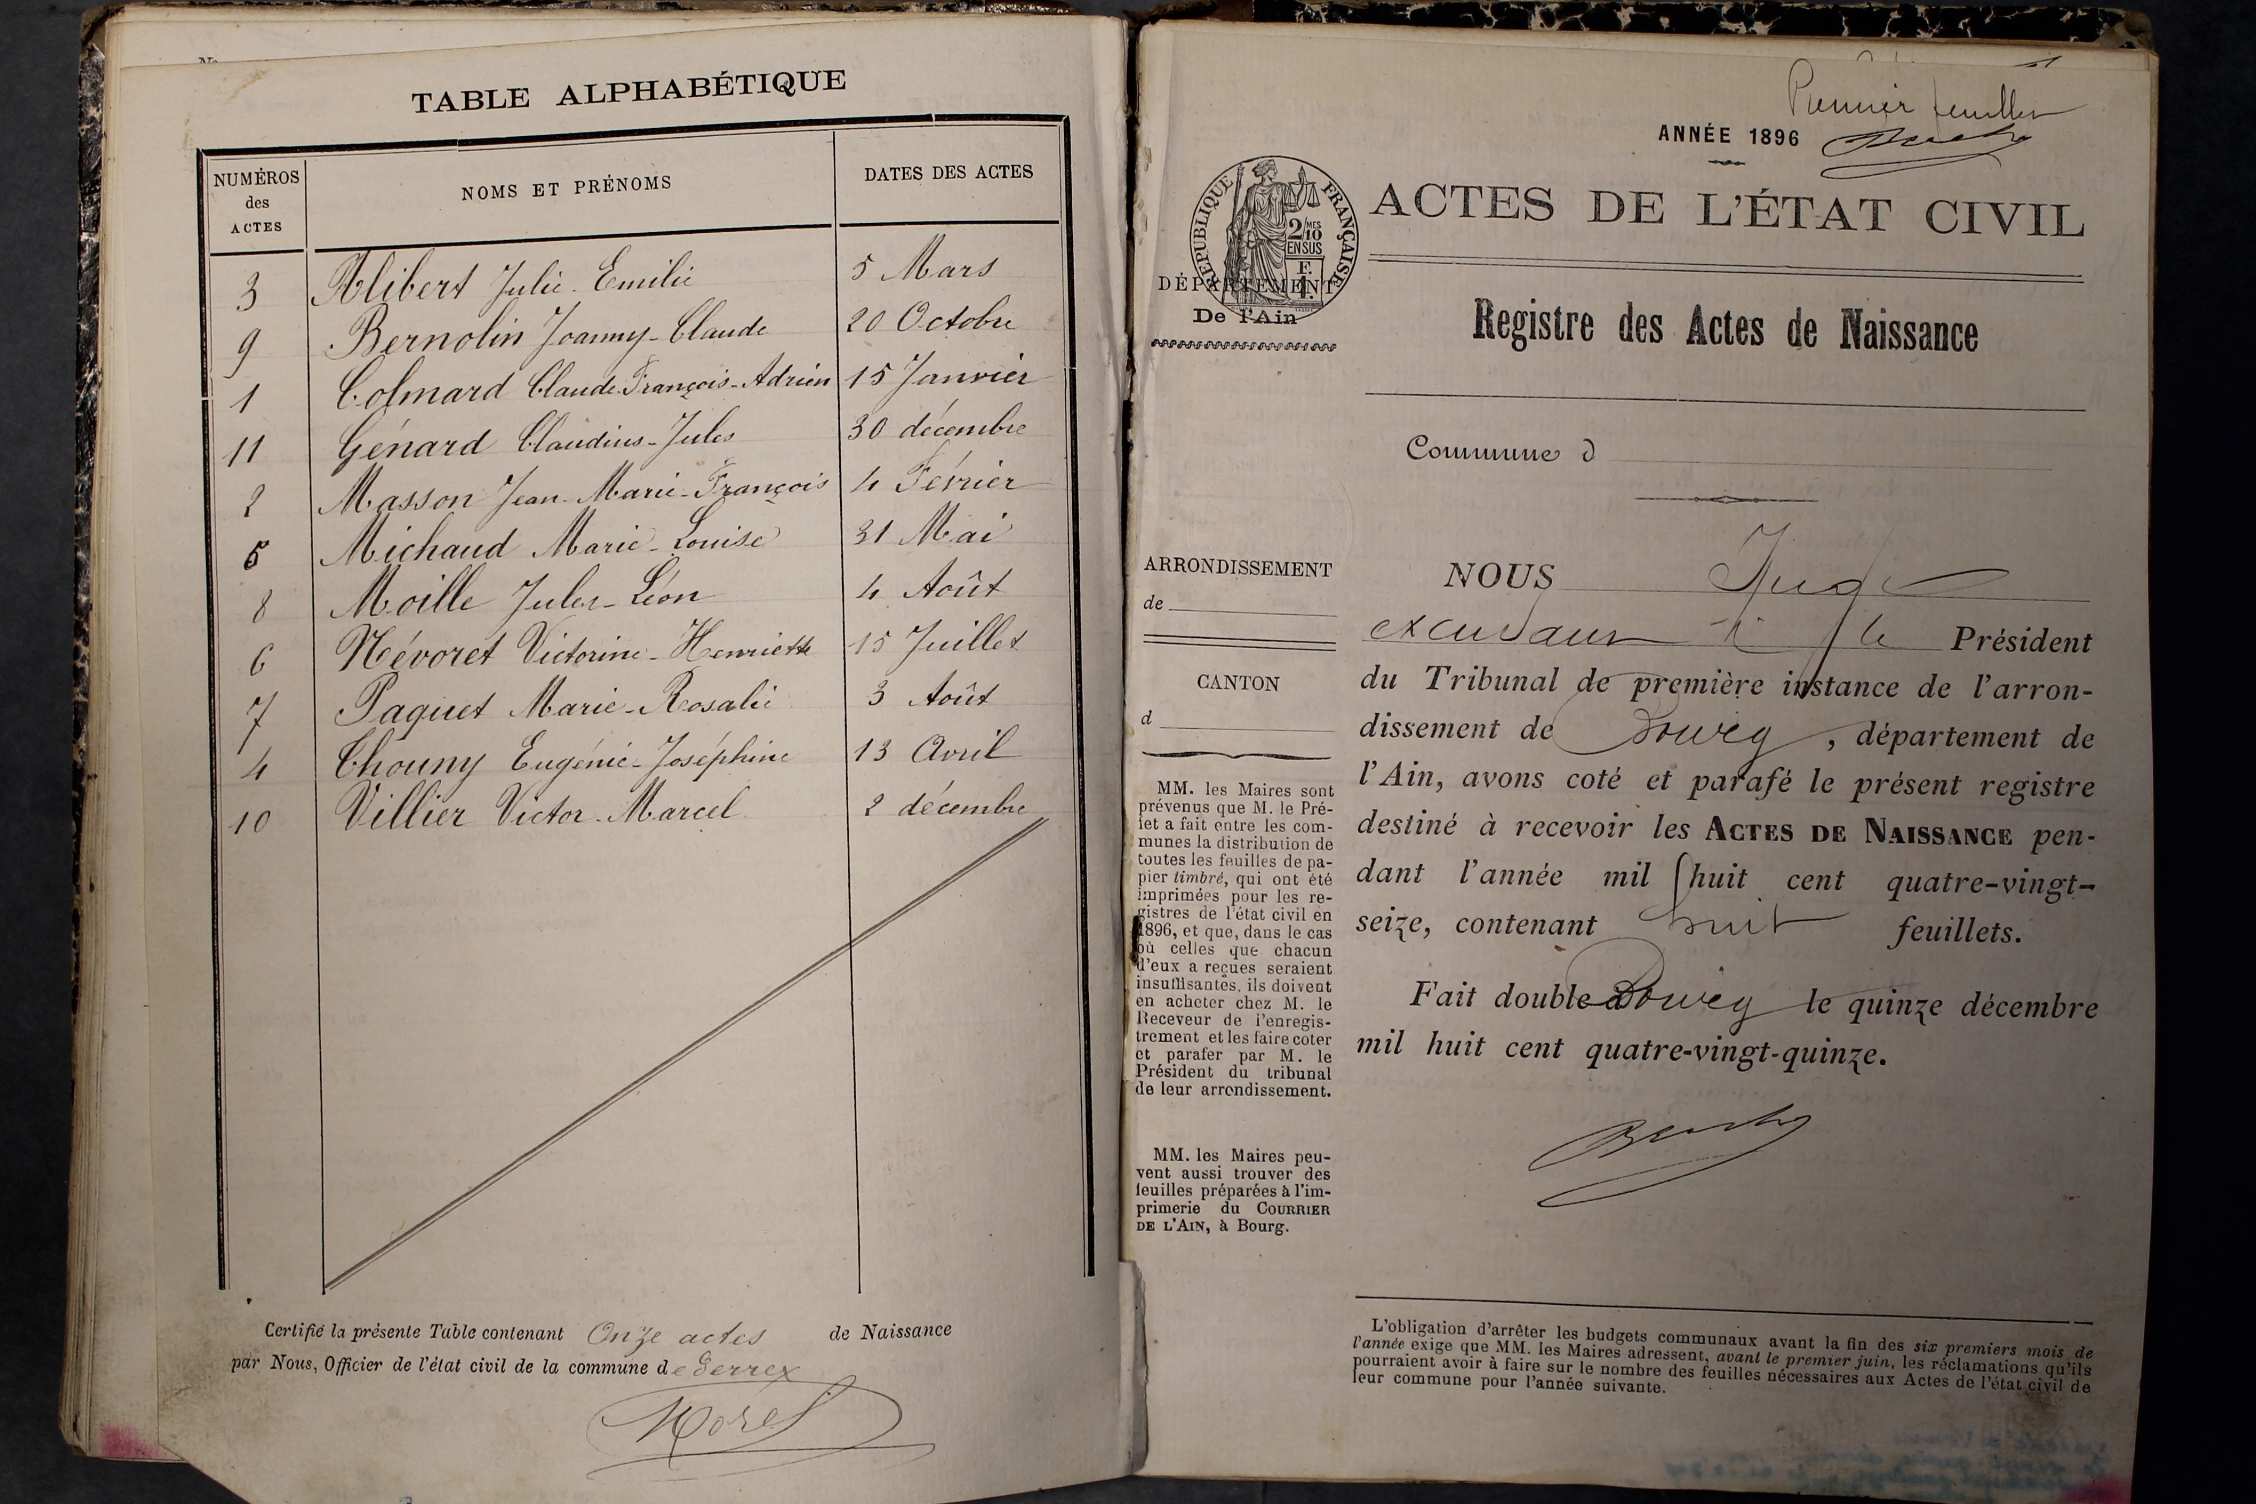 TABLE ALPHABÉTIQUE
NUMÉROS des ACTES
NOMS ET PRÉNOMS
DATES DES ACTES
3 Alibert Julie-Emilie 5 Mars
9 Bernolin Joanny-Claude 20 Octobre
1 Colmard Claude-François-Adrien 15 Janvier
11 Génard Claudius-Jules 30 décembre
2 Masson Jean-Marie-François 4 Février
5 Michaud Marie-Louise 31 Mai
8 Moille Jules-Léon 4 Août
6 Névoret Victorine-Henriette 15 Juillet
7 Paquet Marie-Rosalie 3 Août
4 Thouny Eugénie-Joséphine 13 Avril
10 Villier Victor-Marcel 2 décembre
Certifié la présente Table contenant Onze actes de Naissance
par Nous, Officier de l'état civil de la commune de Serrex
Morel
Premier feuillet
ANNÉE 1896
RÉPUBLIQUE FRANÇAISE
2/10 MES
EN SUS
F.
1.
ACTES DE L'ÉTAT CIVIL
DÉPARTEMENT
De l'Ain
Registre des Actes de Naissance
Commune d
ARRONDISSEMENT
de
CANTON
d
MM. les Maires sont
prévenus que M. le Pré-
fet a fait entre les com-
munes la distribution de
toutes les feuilles de pa-
pier timbré, qui ont été
imprimées pour les re-
gistres de l'état civil en
1896, et que, dans le cas
où celles que chacun
d'eux a reçues seraient
insuffisantes, ils doivent
en acheter chez M. le
Receveur de l'enregis-
trement et les faire coter
et parafer par M. le
Président du tribunal
de leur arrondissement.
MM. les Maires peu-
vent aussi trouver des
feuilles préparées à l'im-
primerie du COURRIER
DE L'AIN, à Bourg.
NOUS Juge
Président
du Tribunal de première instance de l'arron-
dissement de Bourg, département de
l'Ain, avons coté et parafé le présent registre
destiné à recevoir les ACTES DE NAISSANCE pen-
dant l'année mil huit cent quatre-vingt-
seize, contenant huit feuillets.
Fait double à Bourg le quinze décembre
mil huit cent quatre-vingt-quinze.
L'obligation d'arrêter les budgets communaux avant la fin des six premiers mois de
l'année exige que MM. les Maires adressent, avant le premier juin, les réclamations qu'ils
pourraient avoir à faire sur le nombre des feuilles nécessaires aux Actes de l'état civil de
leur commune pour l'année suivante.